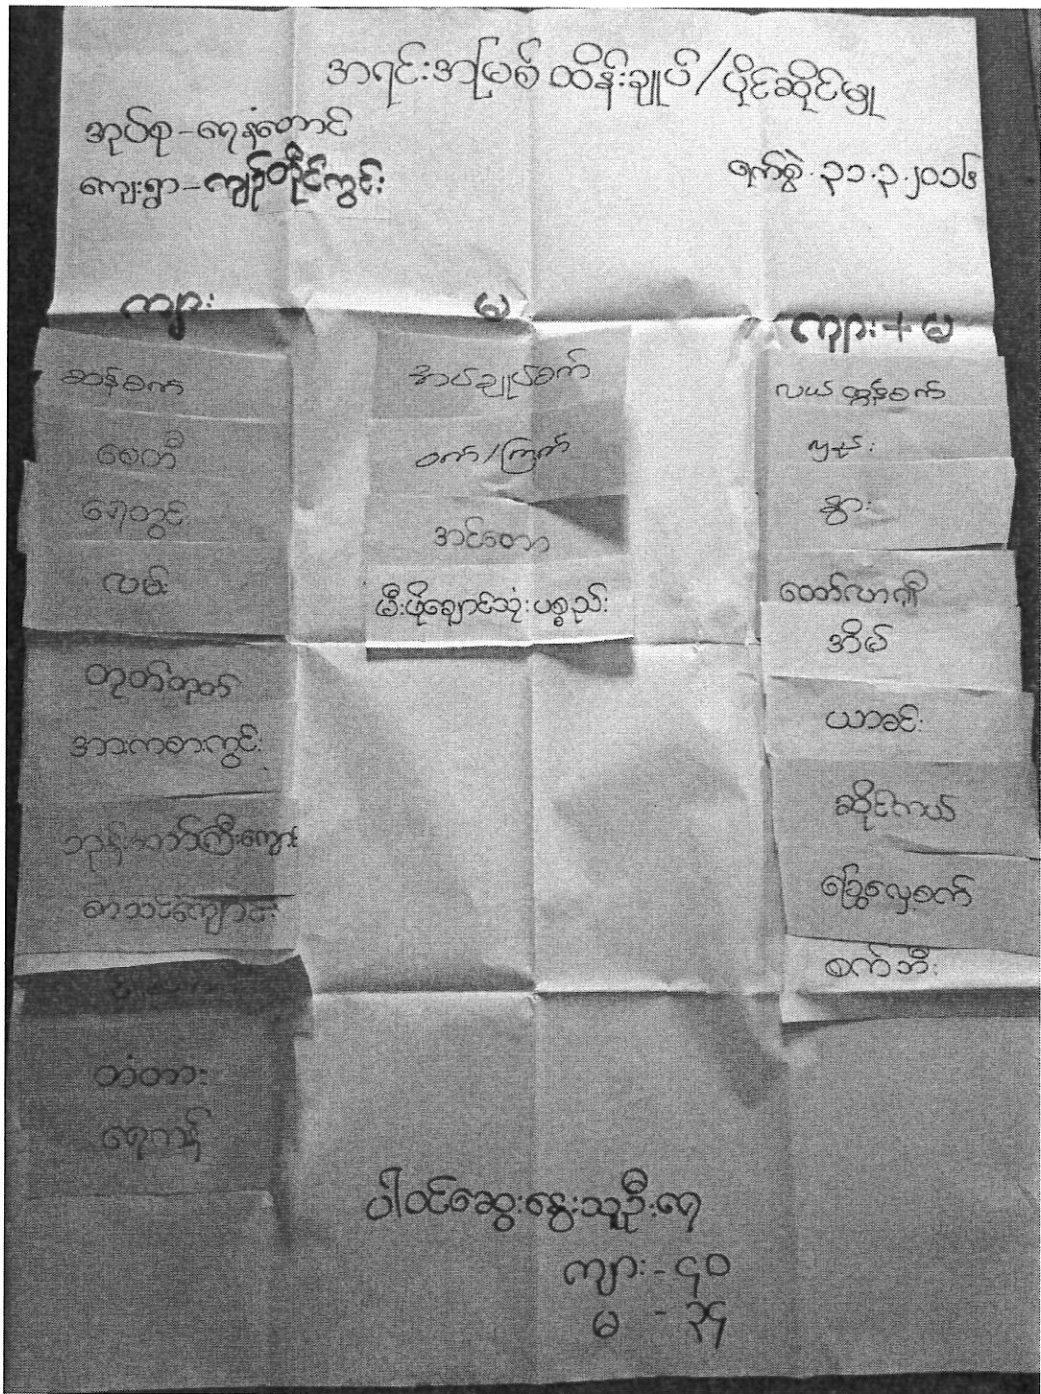 အရင်းအမြစ် ထိန်းချုပ်/ပိုင်ဆိုင်မှု
အုပ်စု-ရေနံတောင်
ကျေးရွာ-ကျဉ်တိုင်ကွင်း
ရက်စွဲ.၃၁.၃.၂၀၁၆
ကျား
ဆန်စက်
စေတီ
ရေတွင်း
လမ်း
တုတ်တုတ်
အားကစားကွင်း
ဘုန်းတော်ကြီးကျောင်း
စာသင်ကျောင်း
တံတား
ရေကန်
မ
အပ်ချုပ်စက်
ဝက်/ကြက်
အင်တော
မီးဖိုချောင်သုံးပစ္စည်း
ကျား+မ
လယ်ထွန်စက်
လှည်း
နွား
ထော်လာဂျီ
အိမ်
ယာခင်း
ဆိုင်ကယ်
ခြွေလှေ့စက်
စက်ဘီး
ပါဝင်ဆွေးနွေးသူဦးရေ
ကျား-၄၀
မ - ၃၄